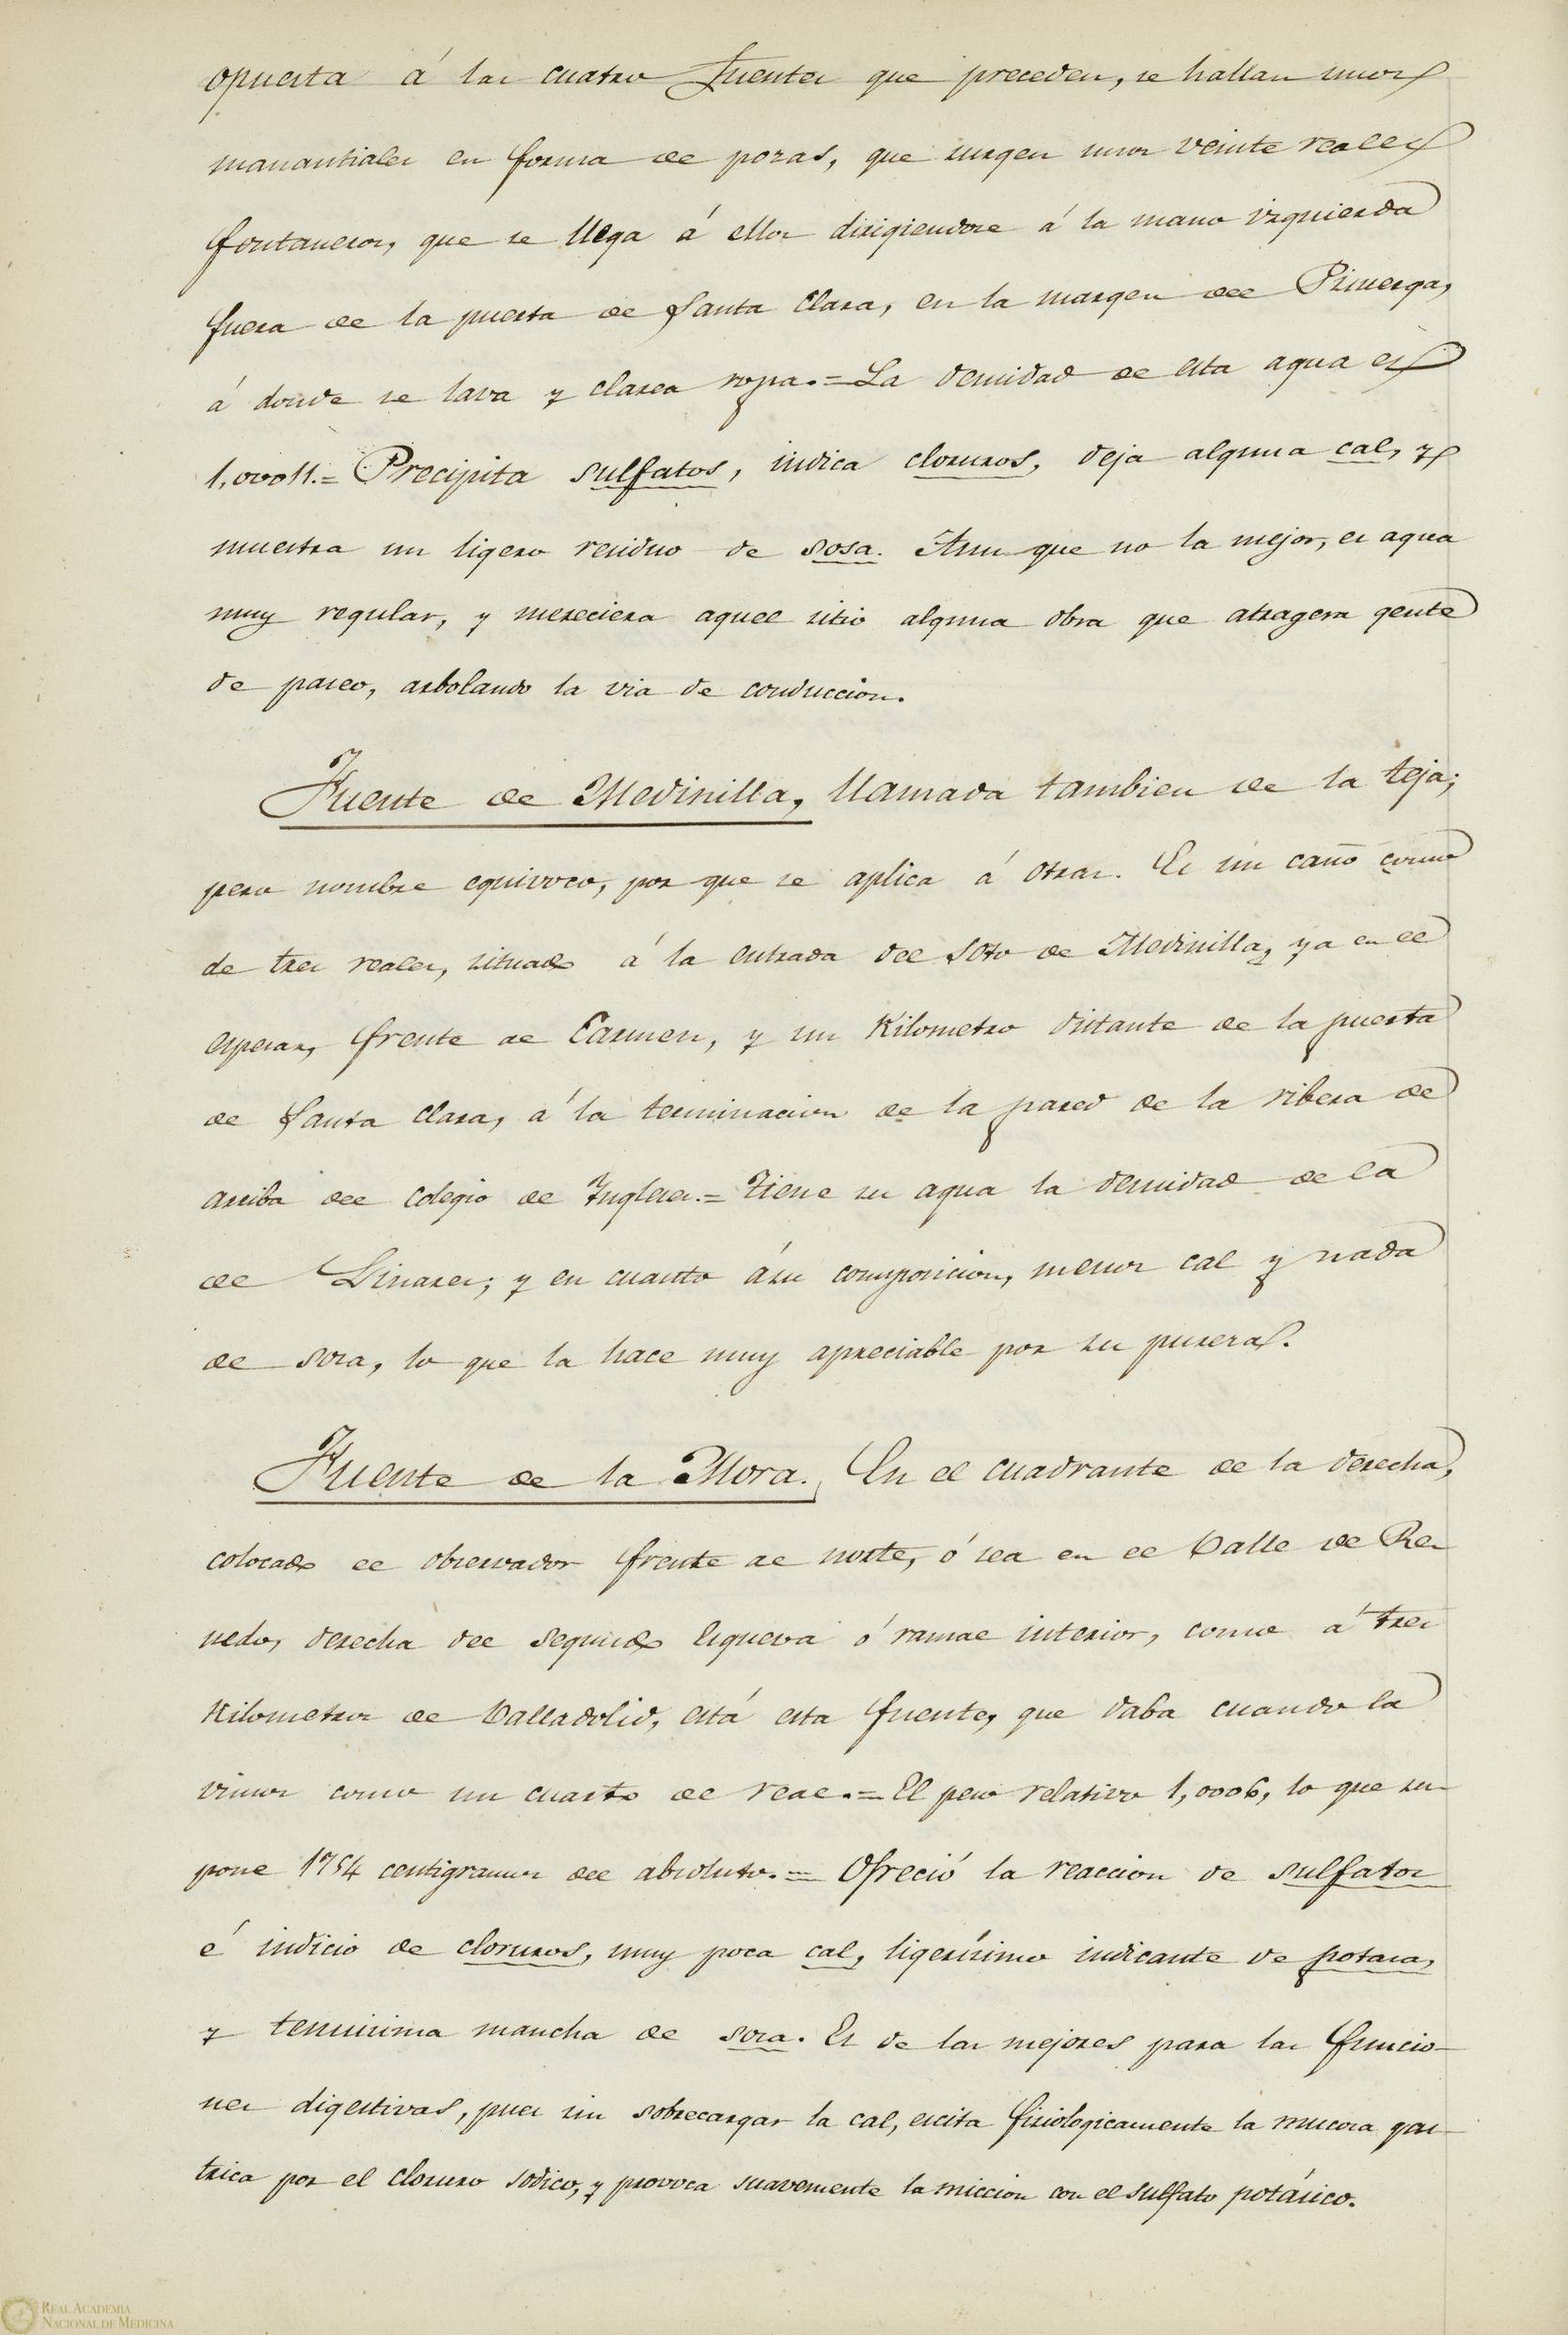 opuesta á las cuatro fuentes que preceden, se hallan unos
manantiales en forma de pozas, que surgen unos veinte reales
fontaneros, que se llega á ellos dirigiendose á la mano izquierda
fuera de la puerta de Santa Clara, en la margen del Pisuerga,
á donde se lava y clarea ropa.=La densidad de esta agua es
1,00011.= Precipita sulfatos, indica cloruros, deja alguna cal, y
muestra un ligero residuo de sosa. Aun que no la mejor, es agua
muy regular, y mereciera aquel sitio alguna obra que atragera gente
de paseo, arbolando la via de conduccion.
Fuente de Medinilla, llamada tambien de la teja;
pero nombre equivoco, por que se aplica á otras. Es un caño como
de tres reales, situado á la entrada del soto de Medinilla, ya en el
espesar, frente al Carmen, y un Kilometro distante de la puerta
de Santa Clara, á la terminacion de la pared de la ribera de
arriba del colegio de Ingleses.= Tiene su agua la densidad de la
de Linares; y en cuanto á su composicion, menos cal y nada
de sosa, lo que la hace muy apreciable por su pureza.
Fuente de la Mora. En el cuadrante de la derecha,
colocado el observador frente al norte, ó sea en el Valle de Re-
nedo, derecha del segundo Esgueva ó ramal interior, como á tres
Kilometros de Valladolid, está esta fuente, que daba cuando la
vimos como un cuarto de real.=El peso relativo 1,0006, lo que su-
pone 1754 centigramos del absoluto.= Ofreció la reaccion de sulfatos
é indicio de cloruros, muy poca cal, ligerísimo indicante de potasa,
y tenuisima mancha de sosa. Es de las mejores para las funcio-
nes digestivas, pues sin sobrecargar la cal, escita fisiologicamente la mucosa gas-
trica por el cloruro sodico, y provoca suavemente la miccion con el sulfato potásico.
REAL ACADEMIA
NACIONAL DE MEDICINA